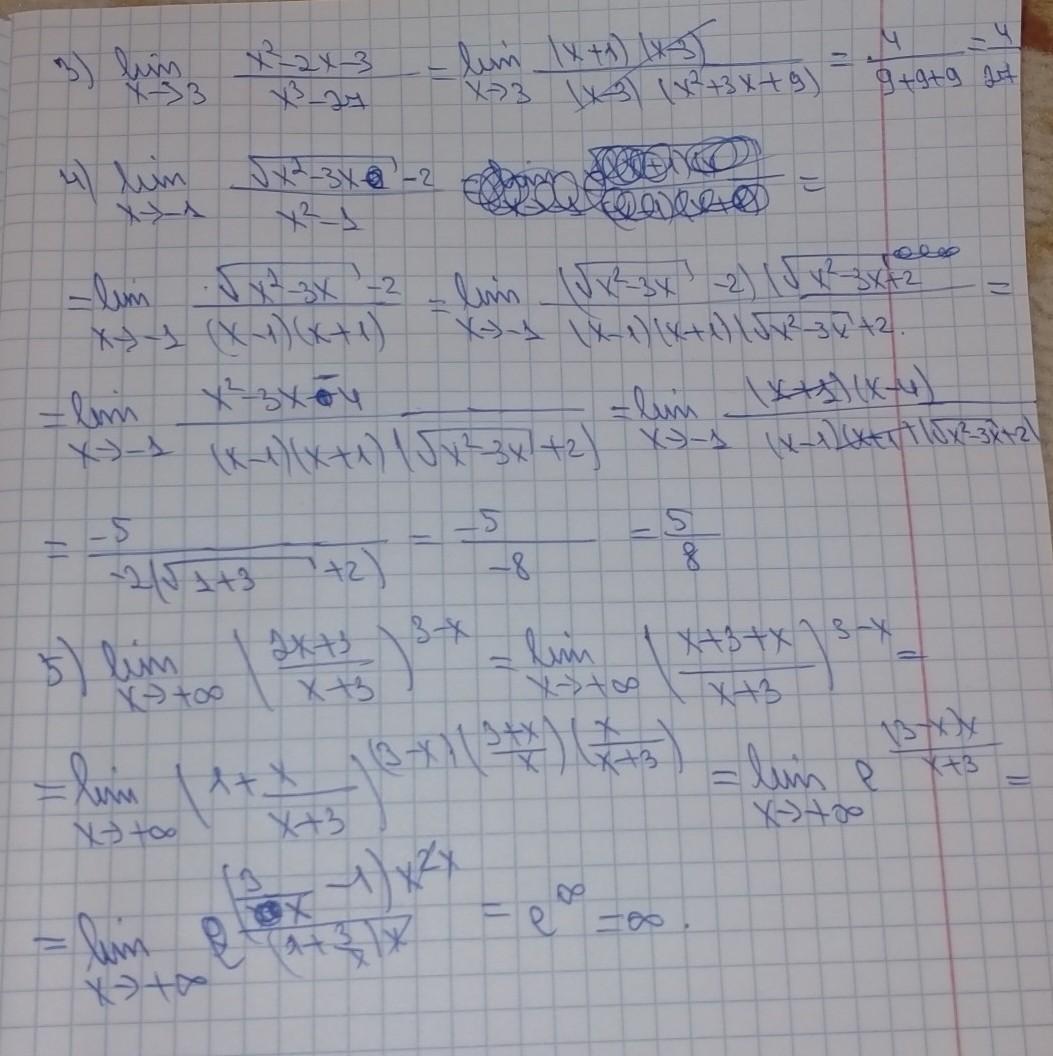 3) lim x→3 (x²-2x-3)/(x³-27) = lim x→3 ((x+1)(x-3))/((x-3)(x²+3x+9)) = 4/(9+9+9) = 4/27
4) lim x→-1 (√(x²-3x) -2)/(x²-1) =
= lim x→-1 (√(x²-3x) -2)/((x-1)(x+1)) = lim x→-1 ((√(x²-3x) -2)(√(x²-3x+2)/((x-1)(x+1)(√(x²-3x) +2. =
= lim x→-1 (x²-3x-4)/((x-1)(x+1)(√(x²-3x) +2)) = lim x→-1 ((x+1)(x-4))/((x-1)(x+1)(√(x²-3x)+2)
= -5/(-2(√(1+3) +2)) = -5/-8 = 5/8
5) lim x→+∞ ((2x+3)/(x+3))^(3-x) = lim x→+∞ ((x+3+x)/(x+3))^(3-x) =
= lim x→+∞ (1+x/(x+3))^((3-x)((3+x)/x)(x/(x+3))) = lim x→+∞ e^((3-x)x/(x+3)) =
= lim x→+∞ e^((3/x -1)x²x/((1+3/x)x)) = e^∞ = ∞.